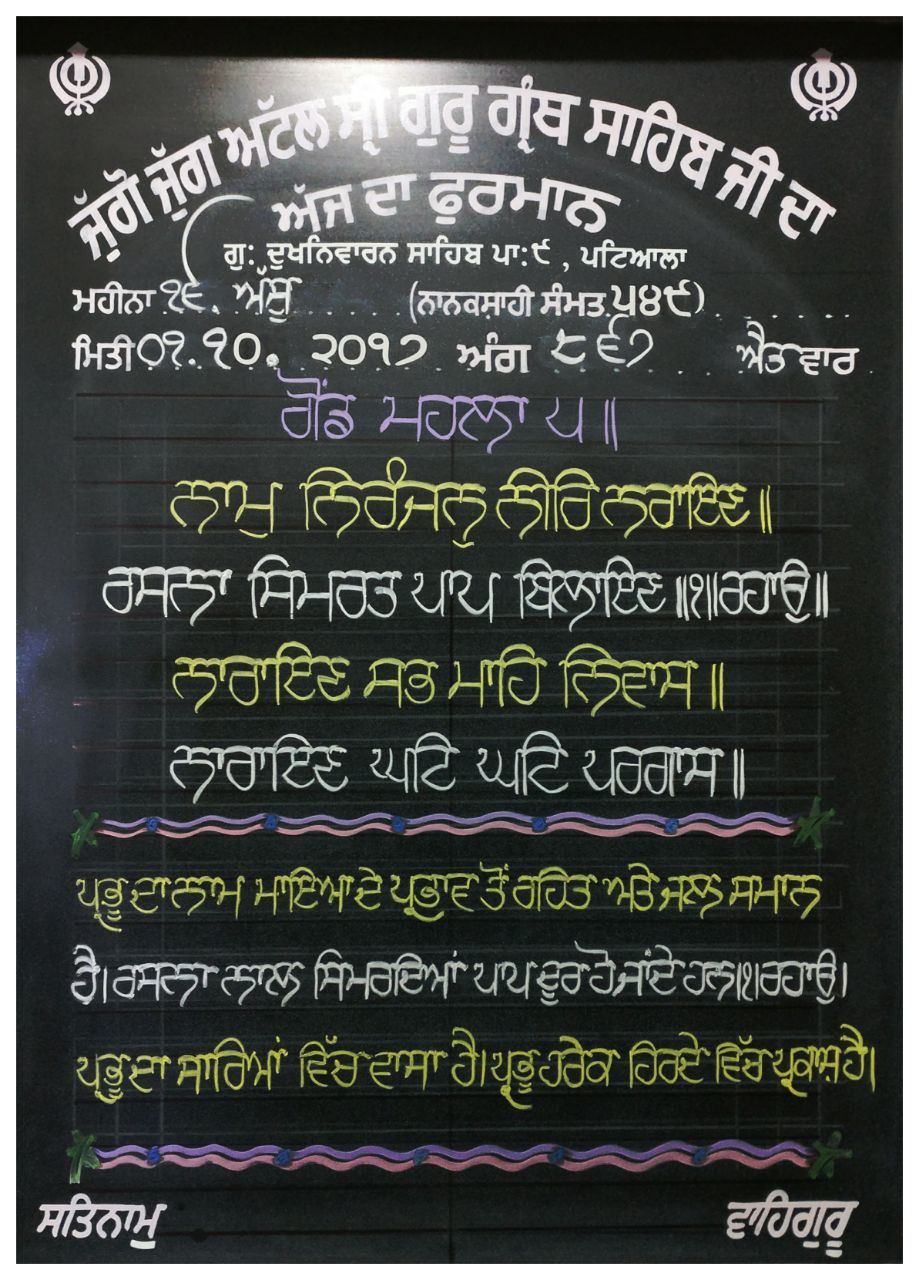 ਜੁੱਗੋ ਜੁੱਗ ਅੱਟਲ ਸ੍ਰੀ ਗੁਰੂ ਗ੍ਰੰਥ ਸਾਹਿਬ ਜੀ ਦਾ
ਅੱਜ ਦਾ ਫੁਰਮਾਨ
ਗੁ: ਦੁਖਨਿਵਾਰਨ ਸਾਹਿਬ ਪਾ:੯, ਪਟਿਆਲਾ
ਮਹੀਨਾ ੧੬. ਅੱਸੂ (ਨਾਨਕਸ਼ਾਹੀ ਸੰਮਤ ੫੪੯)
ਮਿਤੀ ੦੧.੧੦. ੨੦੧੭ ਅੰਗ ੮੬੭ ਐਤ ਵਾਰ
ਗੋਂਡ ਮਹਲਾ ੫॥
ਨਾਮੁ ਨਿਰੰਜਨੁ ਨੀਰਿ ਨਰਾਇਣ॥
ਰਸਨਾ ਸਿਮਰਤ ਪਾਪ ਬਿਲਾਇਣ॥੧॥ਰਹਾਉ॥
ਨਾਰਾਇਣ ਸਭ ਮਾਹਿ ਨਿਵਾਸ॥
ਨਾਰਾਇਣ ਘਟਿ ਘਟਿ ਪਰਗਾਸ॥
ਪ੍ਰਭੂ ਦਾ ਨਾਮ ਮਾਇਆ ਦੇ ਪ੍ਰਭਾਵ ਤੋਂ ਰਹਿਤ ਅਤੇ ਜਲ ਸਮਾਨ
ਹੈ। ਰਸਨਾ ਨਾਲ ਸਿਮਰਦਿਆਂ ਪਾਪ ਦੂਰ ਹੋ ਜਾਂਦੇ ਹਨ॥੧॥ਰਹਾਉ।
ਪ੍ਰਭੂ ਦਾ ਸਾਰਿਆਂ ਵਿੱਚ ਵਾਸਾ ਹੈ। ਪ੍ਰਭੂ ਹਰੇਕ ਹਿਰਦੇ ਵਿੱਚ ਪ੍ਰਕਾਸ਼ ਹੈ।
ਸਤਿਨਾਮੁ ਵਾਹਿਗੁਰੂ